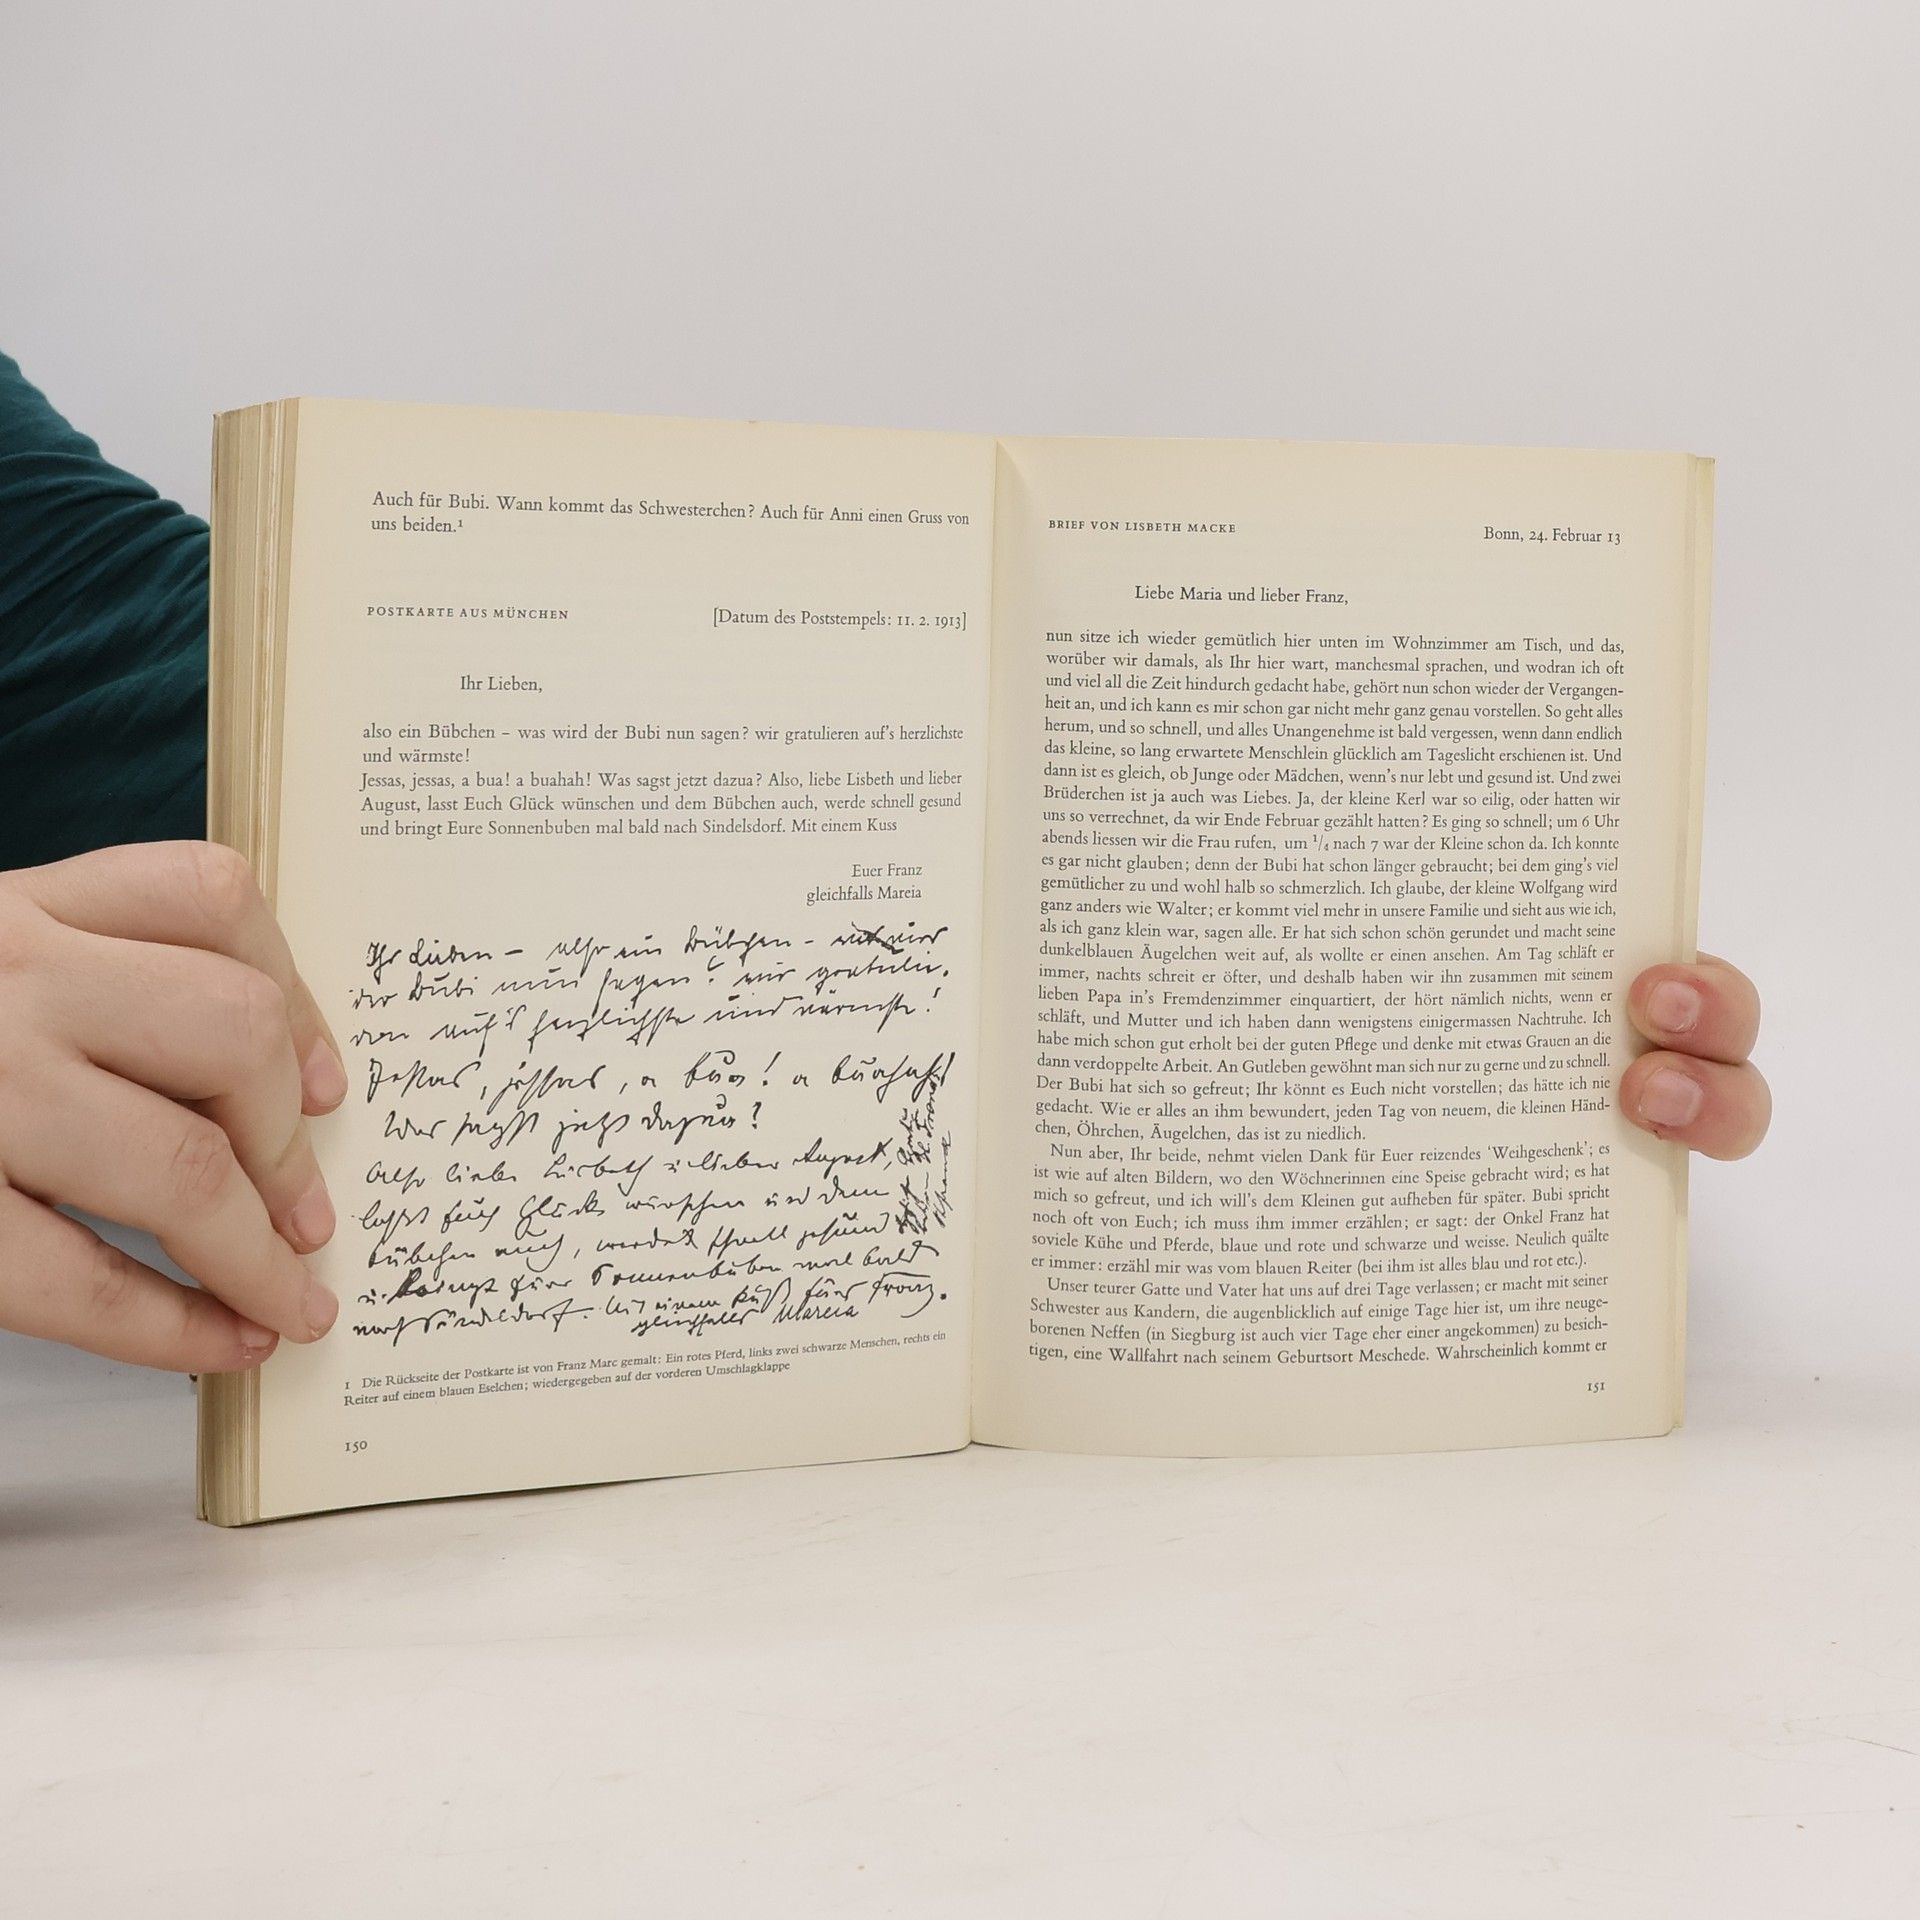 Auch für Bubi. Wann kommt das Schwesterchen? Auch für Anni einen Gruss von
uns beiden.¹
POSTKARTE AUS MÜNCHEN [Datum des Poststempels: 11. 2. 1913]
Ihr Lieben,
also ein Bübchen – was wird der Bubi nun sagen? wir gratulieren auf's herzlichste
und wärmste!
Jessas, jessas, a bua! a buahah! Was sagst jetzt dazua? Also, liebe Lisbeth und lieber
August, lasst Euch Glück wünschen und dem Bübchen auch, werde schnell gesund
und bringt Eure Sonnenbuben mal bald nach Sindelsdorf. Mit einem Kuss
Euer Franz
gleichfalls Mareia
Ihr Lieben – also ein Bübchen – wird
der Bubi nun sagen? wir gratulie-
ren auf's herzlichste und wärmste!
Jessas, jessas, a bua! a buahah!
Was sagst jetzt dazua?
Also liebe Lisbeth u. lieber August,
lasst Euch Glück wünschen und dem
Bübchen auch, werdet schnell gesund
u. bringt Eure Sonnenbuben mal bald
nach Sindelsdorf. Mit einem Kuß Euer Franz.
gleichfalls Mareia
1 Die Rückseite der Postkarte ist von Franz Marc gemalt: Ein rotes Pferd, links zwei schwarze Menschen, rechts ein
Reiter auf einem blauen Eselchen; wiedergegeben auf der vorderen Umschlagklappe
150
BRIEF VON LISBETH MACKE Bonn, 24. Februar 13
Liebe Maria und lieber Franz,
nun sitze ich wieder gemütlich hier unten im Wohnzimmer am Tisch, und das,
worüber wir damals, als Ihr hier wart, manchesmal sprachen, und wodran ich oft
und viel all die Zeit hindurch gedacht habe, gehört nun schon wieder der Vergangen-
heit an, und ich kann es mir schon gar nicht mehr ganz genau vorstellen. So geht alles
herum, und so schnell, und alles Unangenehme ist bald vergessen, wenn dann endlich
das kleine, so lang erwartete Menschlein glücklich am Tageslicht erschienen ist. Und
dann ist es gleich, ob Junge oder Mädchen, wenn's nur lebt und gesund ist. Und zwei
Brüderchen ist ja auch was Liebes. Ja, der kleine Kerl war so eilig, oder hatten wir
uns so verrechnet, da wir Ende Februar gezählt hatten? Es ging so schnell; um 6 Uhr
abends liessen wir die Frau rufen, um 1/4 nach 7 war der Kleine schon da. Ich konnte
es gar nicht glauben; denn der Bubi hat schon länger gebraucht; bei dem ging's viel
gemütlicher zu und wohl halb so schmerzlich. Ich glaube, der kleine Wolfgang wird
ganz anders wie Walter; er kommt viel mehr in unsere Familie und sieht aus wie ich,
als ich ganz klein war, sagen alle. Er hat sich schon schön gerundet und macht seine
dunkelblauen Äugelchen weit auf, als wollte er einen ansehen. Am Tag schläft er
immer, nachts schreit er öfter, und deshalb haben wir ihn zusammen mit seinem
lieben Papa in's Fremdenzimmer einquartiert, der hört nämlich nichts, wenn er
schläft, und Mutter und ich haben dann wenigstens einigermassen Nachtruhe. Ich
habe mich schon gut erholt bei der guten Pflege und denke mit etwas Grauen an die
dann verdoppelte Arbeit. An Gutleben gewöhnt man sich nur zu gerne und zu schnell.
Der Bubi hat sich so gefreut; Ihr könnt es Euch nicht vorstellen; das hätte ich nie
gedacht. Wie er alles an ihm bewundert, jeden Tag von neuem, die kleinen Händ-
chen, Öhrchen, Äugelchen, das ist zu niedlich.
Nun aber, Ihr beide, nehmt vielen Dank für Euer reizendes 'Weihgeschenk'; es
ist wie auf alten Bildern, wo den Wöchnerinnen eine Speise gebracht wird; es hat
mich so gefreut, und ich will's dem Kleinen gut aufheben für später. Bubi spricht
noch oft von Euch; ich muss ihm immer erzählen; er sagt: der Onkel Franz hat
soviele Kühe und Pferde, blaue und rote und schwarze und weisse. Neulich quälte
er immer: erzähl mir was vom blauen Reiter (bei ihm ist alles blau und rot etc.).
Unser teurer Gatte und Vater hat uns auf drei Tage verlassen; er macht mit seiner
Schwester aus Kandern, die augenblicklich auf einige Tage hier ist, um ihre neuge-
borenen Neffen (in Siegburg ist auch vier Tage eher einer angekommen) zu besich-
tigen, eine Wallfahrt nach seinem Geburtsort Meschede. Wahrscheinlich kommt er
151